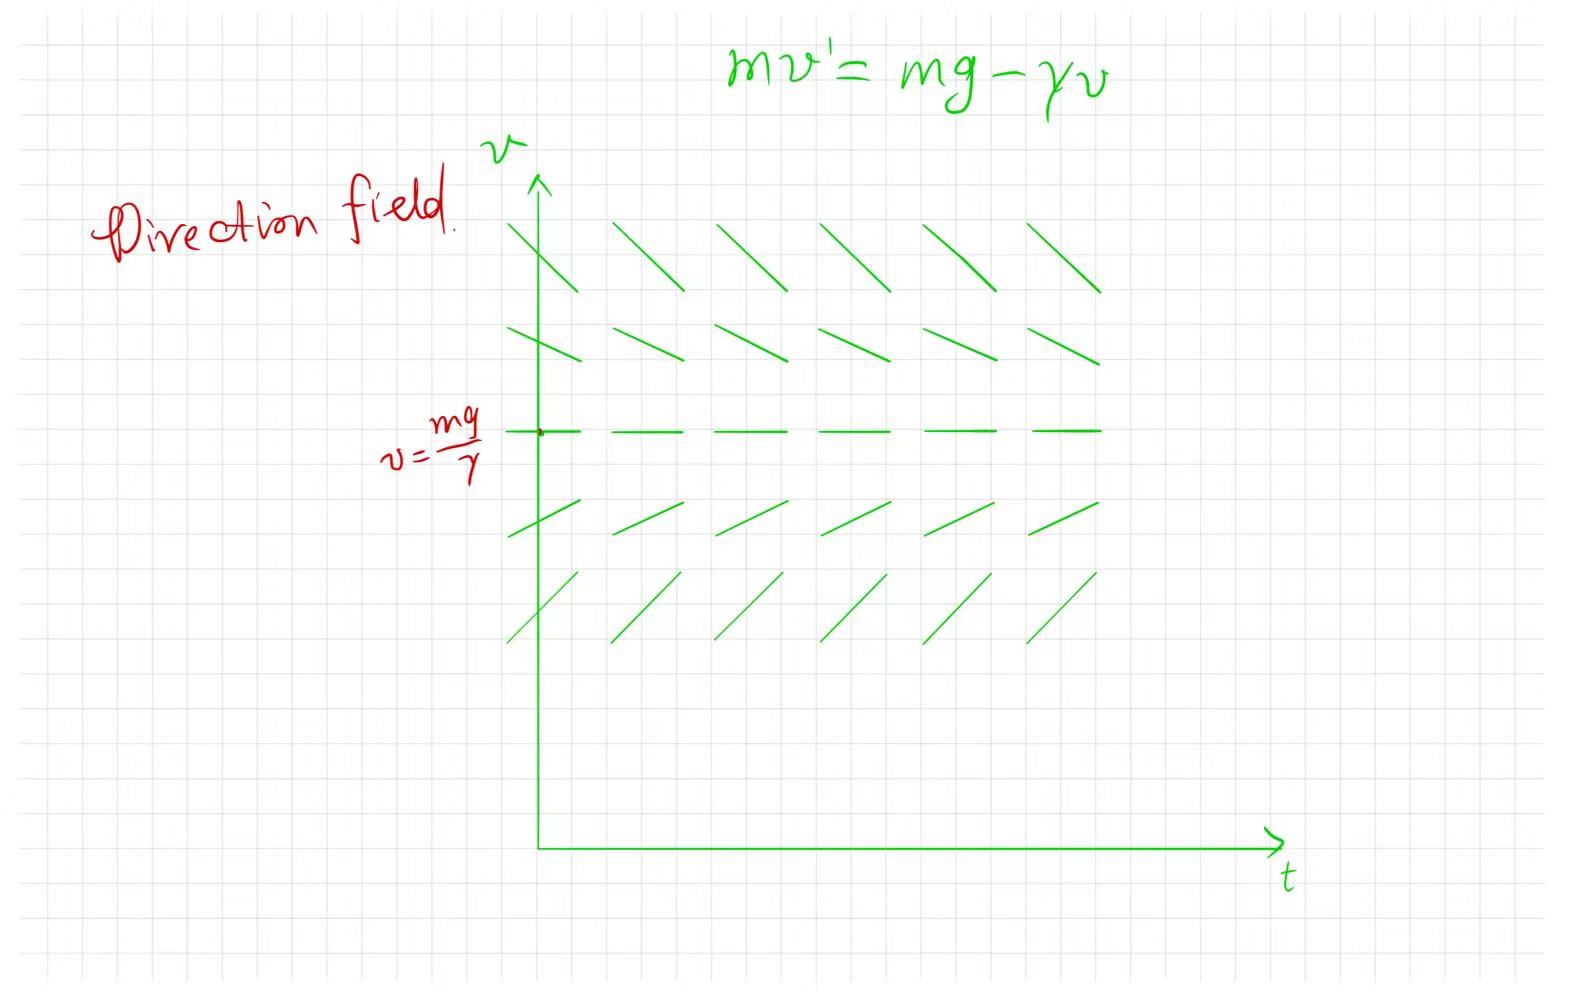 mv' = mg - γv
v
Direction field.
v = mg/γ
t